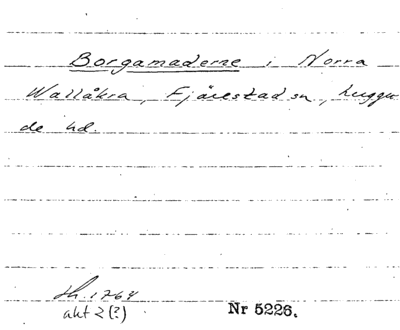 Borgamaderne i Norra
Wallåkra, Fjärestad sn, Luggu
de hd.
Sk. 1764
akt 2 (?)
Nr 5226.